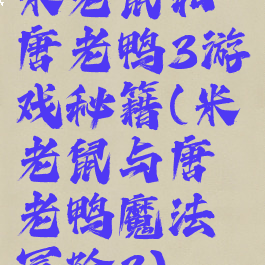 米老鼠和
唐老鸭3游
戏秘籍(米
老鼠与唐
老鸭魔法
冒险3)